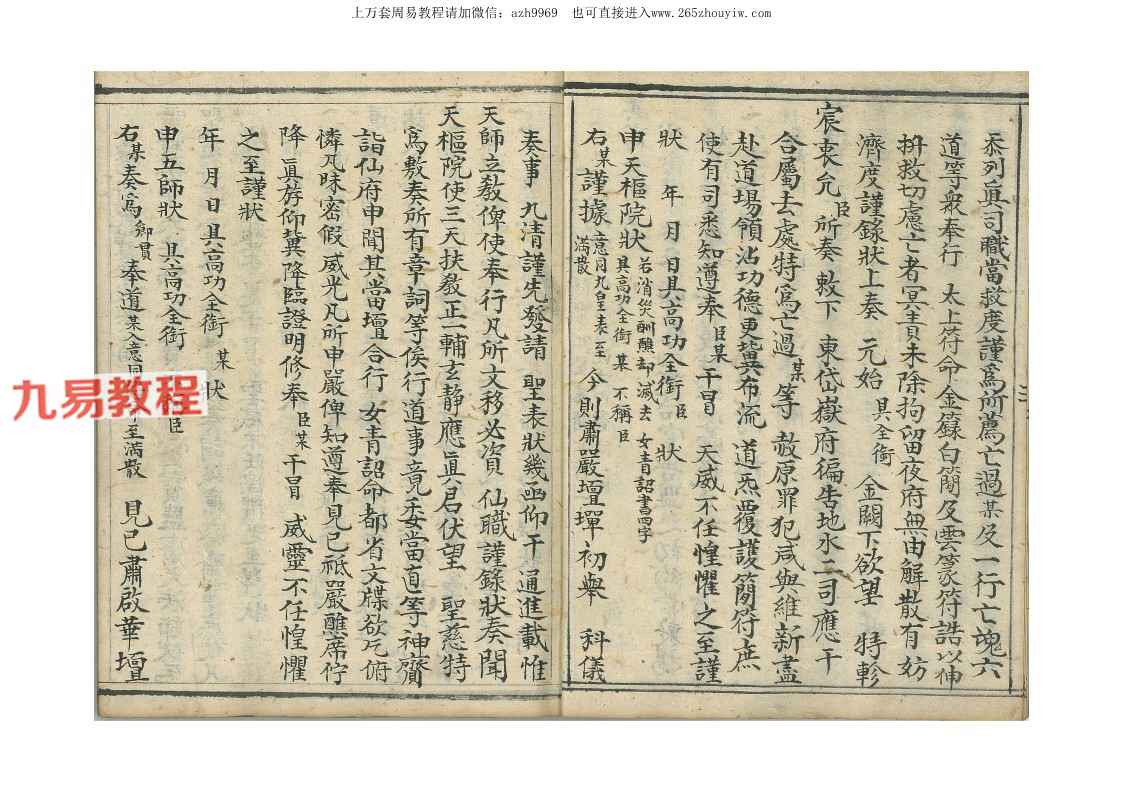 上万套周易教程请加微信：azh9969　也可直接进入www.265zhouyiw.com
忝列眞司職當救度謹爲所薦亡過某及一行亡魂六
道等衆奉行　太上符命金籙白簡及雲篆符誥以伸
拚救切慮亡者冥責未除拘留夜府無由解散有妨
濟度謹錄狀上奏　元始具全銜　金闕下欲望　特軫
宸衷允臣所奏敕下　東岱嶽府徧告地水二司應干
合屬去處特爲亡過某等　赦原罪犯咸與維新盡
赴道場領沾功德更冀布流　道炁覆護簡符庶
使有司悉知遵奉臣某干冒　天威不任惶懼之至謹
狀　年　月　日具高功全銜臣　狀
申天樞院狀若消災酬醮却減去　女青詔書四字
具高功全銜　某　不稱臣
右某謹據意同九皇表至
滿散　今則肅嚴壇墠初舉　科儀
奏事　九清謹先發請　聖表狀幾函仰干　通進載惟
天師立敎俾使奉行凡所文移必資　仙職謹錄狀奏聞
天樞院使三天扶敎正一輔玄靜應眞君伏望　聖慈特
爲敷奏所有章詞等俟行道事竟委當直等神齎
詣仙府申聞其當壇合行　女青詔命都省文牒欲乞俯
憐凡昧密假　威光凡所申嚴俾知遵奉見已祗嚴醮席佇
降眞斿仰冀降臨證明修奉　臣某干冒　威靈不任惶懼
之至謹狀
年　月　日具高功全銜　某　狀
申五師狀　具高功全銜　臣
右某奏爲鄉貫　奉道某入意同　至滿散　見已肅啟華壇
九易教程